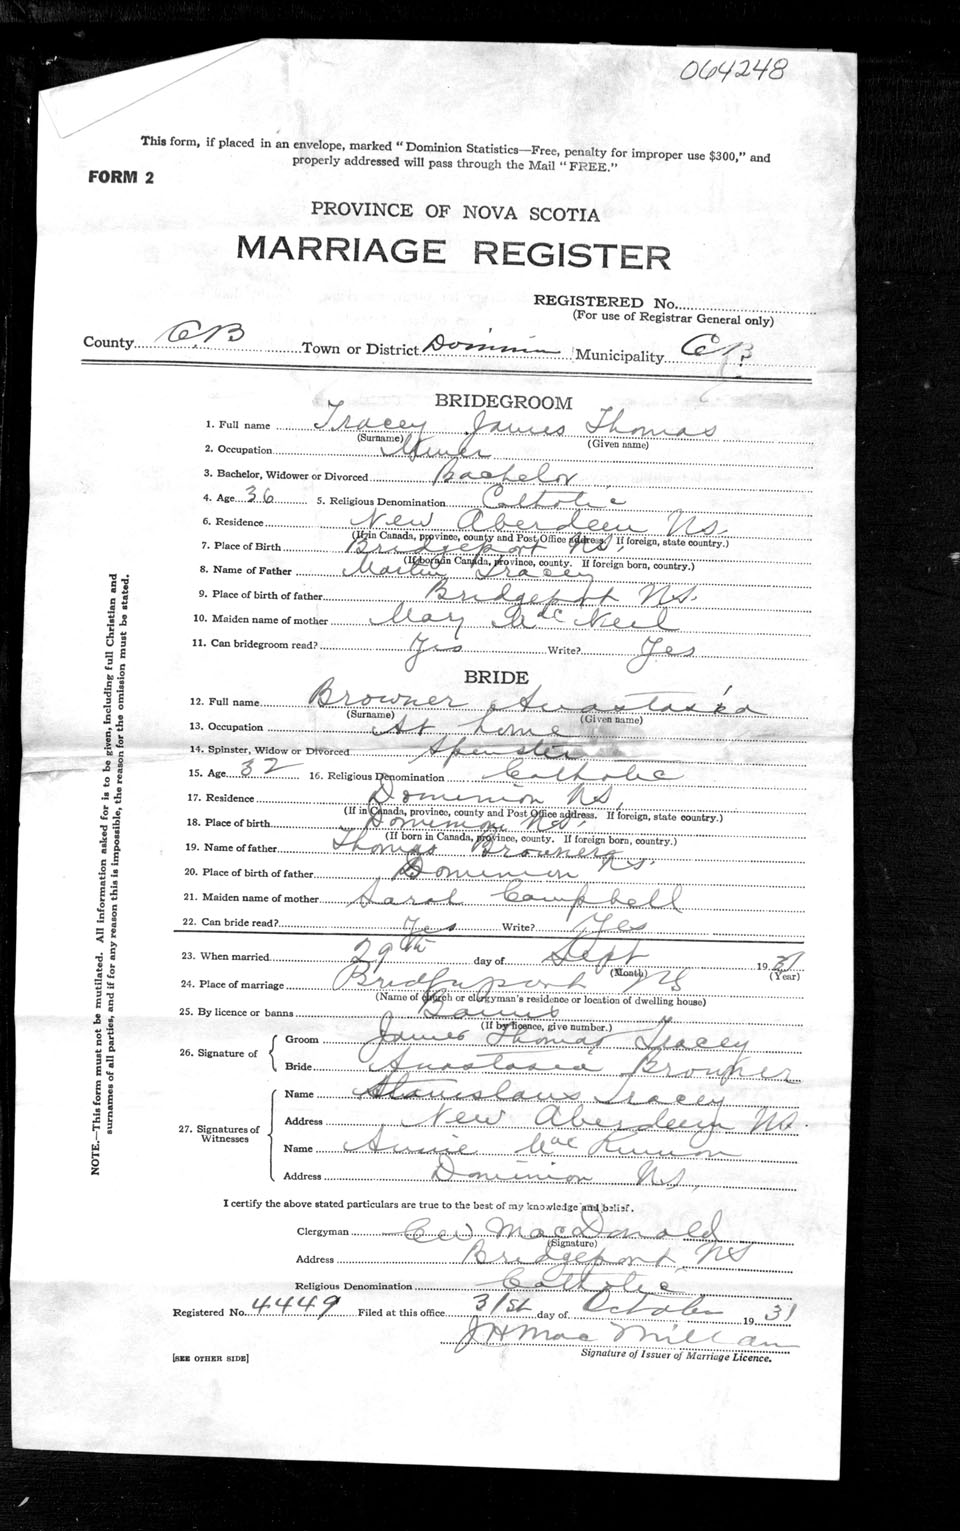 064248
This form, if placed in an envelope, marked "Dominion Statistics—Free, penalty for improper use $300," and
properly addressed will pass through the Mail "FREE."
FORM 2
PROVINCE OF NOVA SCOTIA
MARRIAGE REGISTER
REGISTERED No.
(For use of Registrar General only)
County C.B Town or District Dominion Municipality C.B.
BRIDEGROOM
1. Full name Tracey James Thomas
(Surname) (Given name)
2. Occupation Miner
3. Bachelor, Widower or Divorced Bachelor
4. Age 36 5. Religious Denomination Catholic
6. Residence New Aberdeen N.S.
(If in Canada, province, county and Post Office address. If foreign, state country.)
7. Place of Birth Bridgeport N.S.
(If born in Canada, province, county. If foreign born, country.)
8. Name of Father Martin Tracey
9. Place of birth of father Bridgeport N.S.
10. Maiden name of mother Mary MacNeil
11. Can bridegroom read? Yes Write? Yes
BRIDE
12. Full name Browner Anastasia
(Surname) (Given name)
13. Occupation At home
14. Spinster, Widow or Divorced Spinster
15. Age 32 16. Religious Denomination Catholic
17. Residence Dominion N.S.
(If in Canada, province, county and Post Office address. If foreign, state country.)
18. Place of birth Dominion N.S.
(If born in Canada, province, county. If foreign born, country.)
19. Name of father Thomas Browner
20. Place of birth of father Dominion N.S.
21. Maiden name of mother Sarah Campbell
22. Can bride read? Yes Write? Yes
23. When married 29th day of Sept 1931
(Month) (Year)
24. Place of marriage Bridgeport NS
(Name of church or clergyman's residence or location of dwelling house)
25. By licence or banns Banns
(If by licence, give number.)
26. Signature of Groom James Thomas Tracey
Bride Anastasia Browner
27. Signatures of Witnesses Name Stanislaus Tracey
Address New Aberdeen N.S.
Name Annie MacKinnon
Address Dominion N.S.
I certify the above stated particulars are true to the best of my knowledge and belief.
Clergyman MacDonald
(Signature)
Address Bridgeport, NS
Religious Denomination Catholic
Registered No. 4449 Filed at this office 31st day of October 1931
J H MacMillan
Signature of Issuer of Marriage Licence.
[SEE OTHER SIDE]
NOTE.—This form must not be mutilated. All information asked for is to be given, including full Christian and
surnames of all parties, and if for any reason this is impossible, the reason for the omission must be stated.